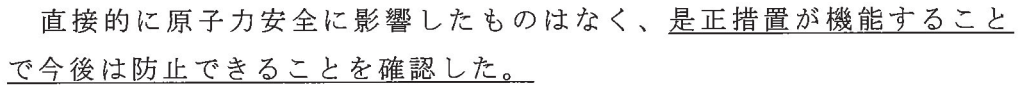 直接的に原子力安全に影響したものはなく、是正措置が機能すること
で今後は防止できることを確認した。